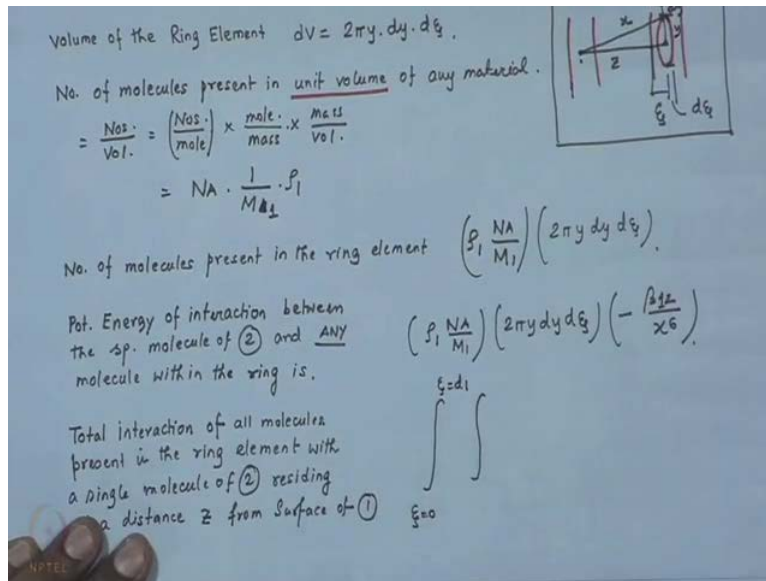 Volume of the Ring Element dV = 2πy.dy.dξ.
No. of molecules present in unit volume of any material.
= Nos./Vol. = (Nos./mole) × mole./mass × mass/Vol.
= NA . 1/M1 . ρ1
No. of molecules present in the ring element (ρ1 NA/M1) (2πy dy dξ).
Pot. Energy of interaction between
the sp. molecule of ② and ANY
molecule within the ring is. (ρ1 NA/M1) (2πy dy dξ) (- β12/x6).
Total interaction of all molecules
present in the ring element with
a single molecule of ② residing
a distance z from Surface of ①
ξ=d1
∫ ∫
ξ=0
x
y
z
ξ
dξ
NPTEL